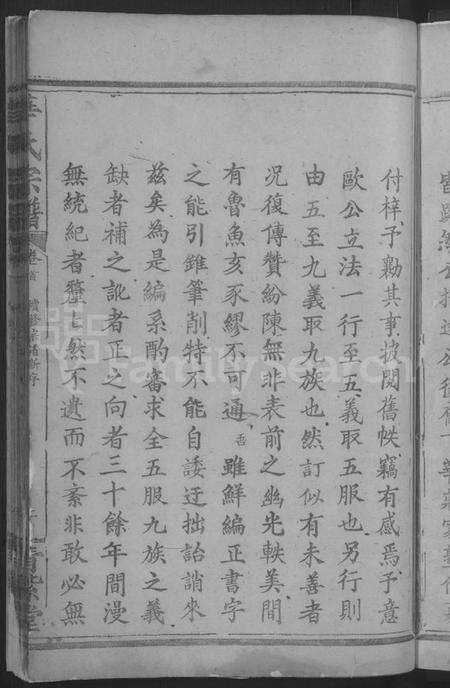 付梓予勷其事披閱舊帙竊有感焉予意
歐公立法一行至五義取五服也另行則
由五至九義取九族也然訂似有未善者
況復傳贊紛陳無非表前之幽光軼美間
有魯魚亥豕繆不可通吾雖鮮編正書字
之能引錐筆削特不能自諉迂拙詒誚來
茲矣為是編系酌審求全五服九族之義
缺者補之訛者正之向者三十餘年間漫
無統紀者釐七然不遺而不紊非敢必無
氏宗譜 卷首
FamilySearch